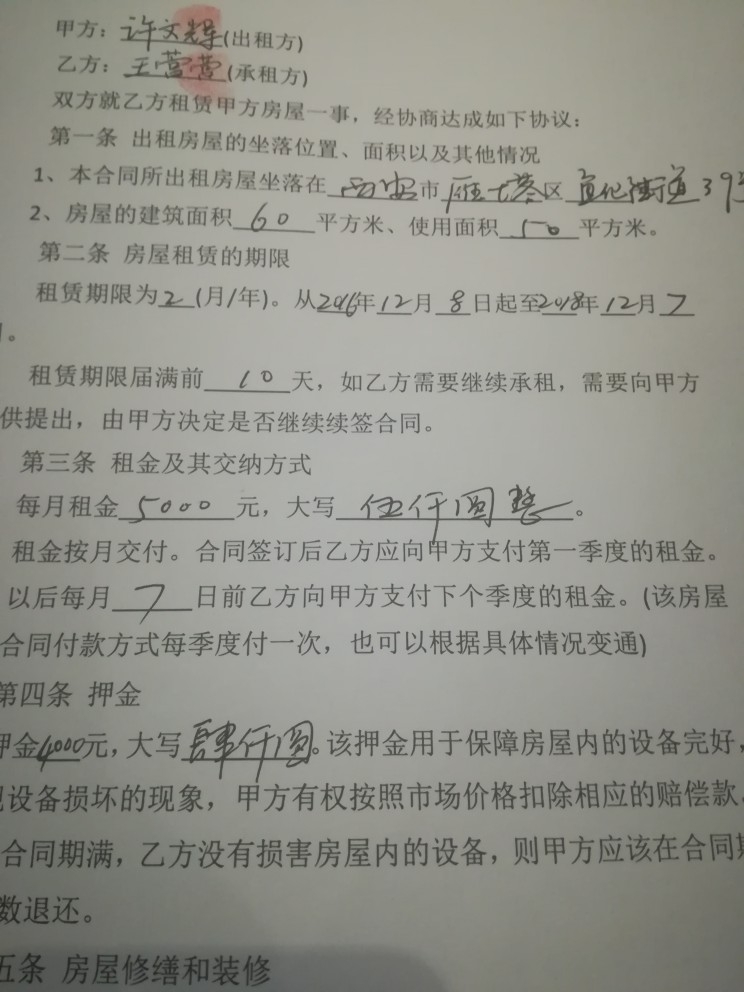 甲方：许文辉(出租方)
乙方：王营营(承租方)
双方就乙方租赁甲方房屋一事，经协商达成如下协议：
第一条 出租房屋的坐落位置、面积以及其他情况
1、本合同所出租房屋坐落在西安市雁塔区宜化街道393
2、房屋的建筑面积60平方米、使用面积50平方米。
第二条 房屋租赁的期限
租赁期限为2(月/年)。从2016年12月8日起至2018年12月7
。
租赁期限届满前10天，如乙方需要继续承租，需要向甲方
供提出，由甲方决定是否继续续签合同。
第三条 租金及其交纳方式
每月租金5000元，大写伍仟圆整。
租金按月交付。合同签订后乙方应向甲方支付第一季度的租金。
以后每月7日前乙方向甲方支付下个季度的租金。(该房屋
合同付款方式每季度付一次，也可以根据具体情况变通)
第四条 押金
押金4000元，大写肆仟圆。该押金用于保障房屋内的设备完好，
现设备损坏的现象，甲方有权按照市场价格扣除相应的赔偿款。
合同期满，乙方没有损害房屋内的设备，则甲方应该在合同期
数退还。
五条 房屋修缮和装修